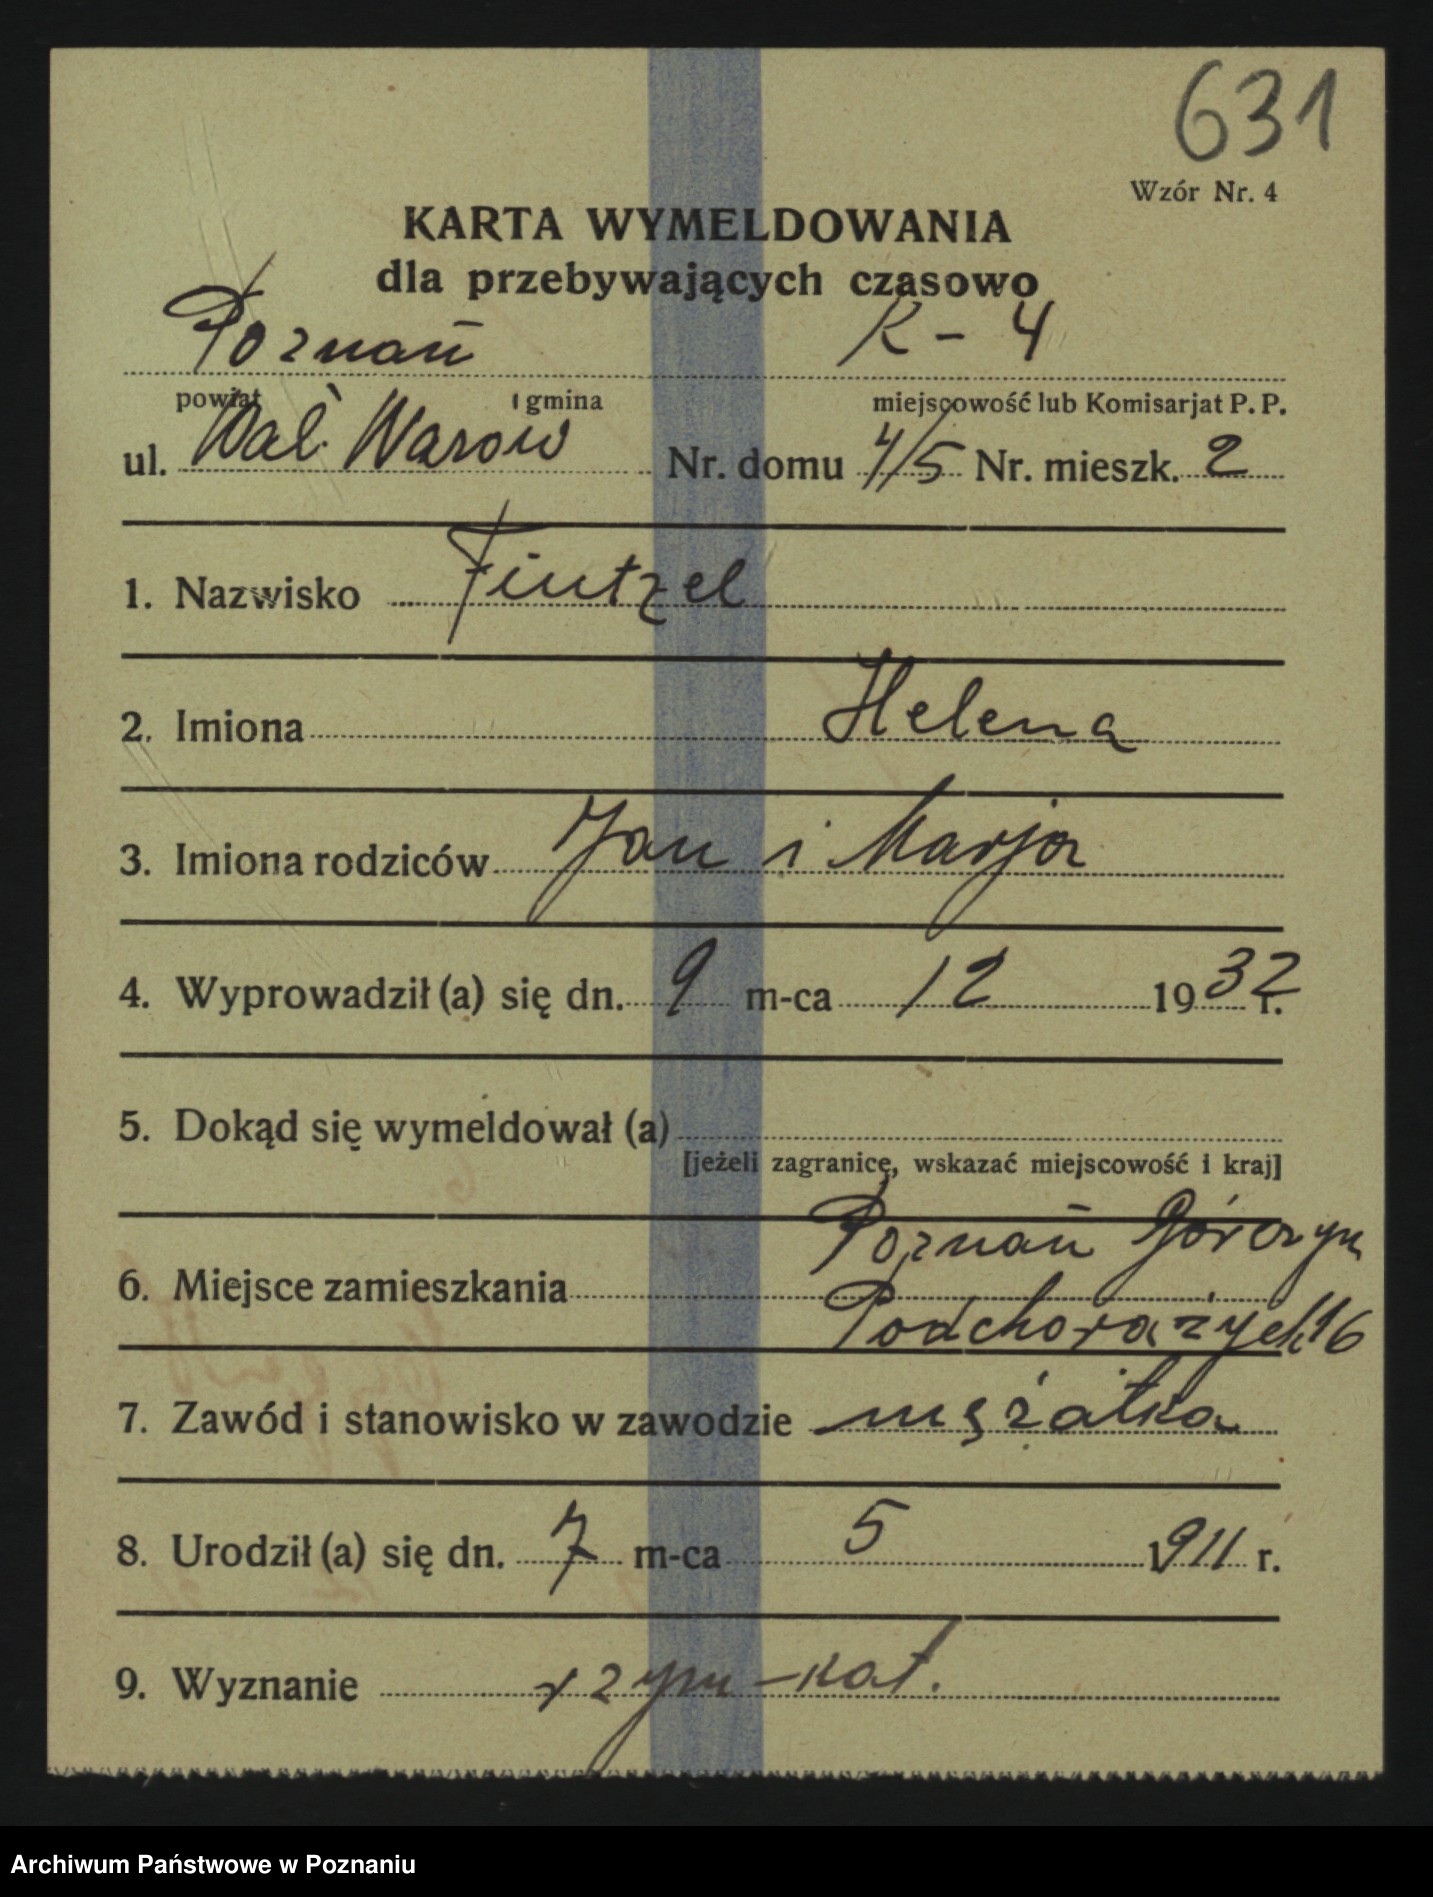 631
Wzór Nr. 4
KARTA WYMELDOWANIA
dla przebywających czasowo
Poznań K - 4
powiat i gmina miejscowość lub Komisarjat P. P.
ul. Wał. Warow Nr. domu 4/5 Nr. mieszk. 2
1. Nazwisko Fintzel
2. Imiona Helena
3. Imiona rodziców Jan i Marja
4. Wyprowadził (a) się dn. 9 m-ca 12 1932 r.
5. Dokąd się wymeldował (a)
[jeżeli zagranicę, wskazać miejscowość i kraj]
Poznań Górczyn
6. Miejsce zamieszkania
Podchorążych 16
7. Zawód i stanowisko w zawodzie mężatka
8. Urodził (a) się dn. 7 m-ca 5 1911 r.
9. Wyznanie rzym-kat.
Archiwum Państwowe w Poznaniu